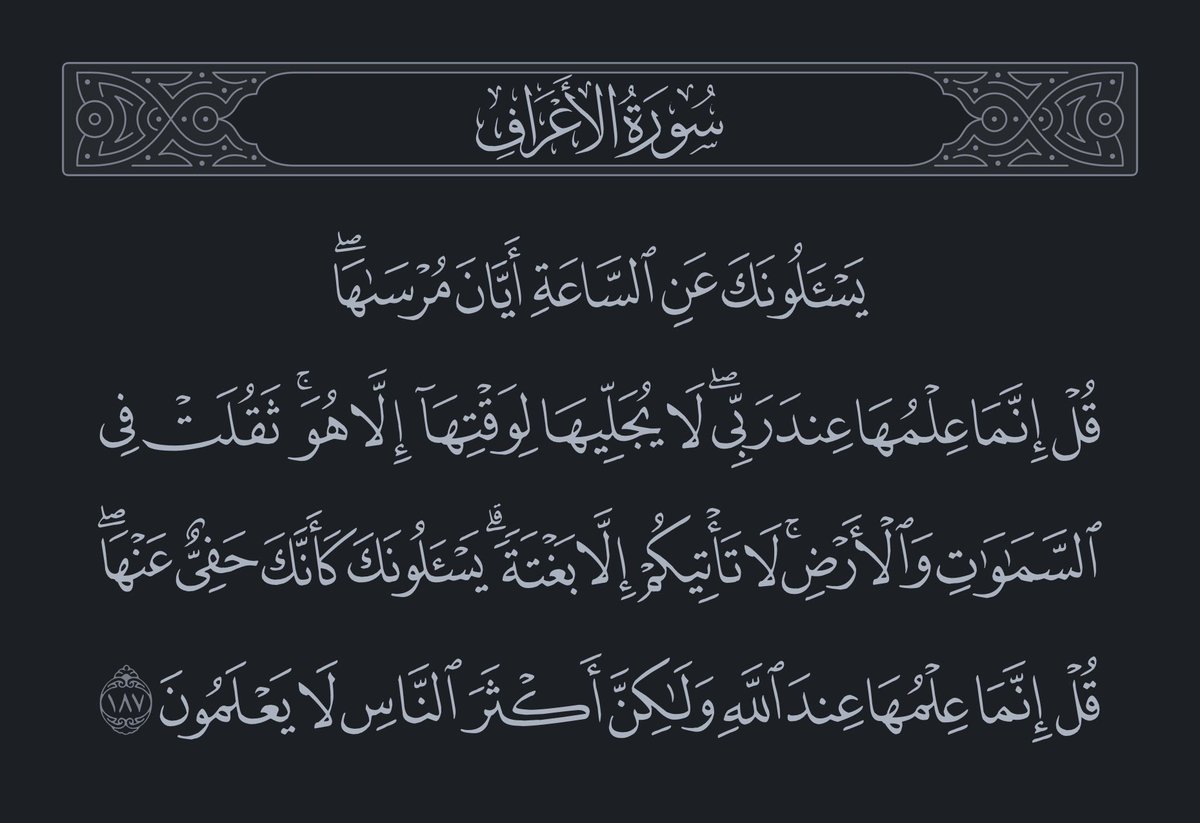 سُورَةُ الأَعْرَافِ
يَسْـَٔلُونَكَ عَنِ ٱلسَّاعَةِ أَيَّانَ مُرْسَىٰهَا ۖ
قُلْ إِنَّمَا عِلْمُهَا عِندَ رَبِّى ۖ لَا يُجَلِّيهَا لِوَقْتِهَآ إِلَّا هُوَ ۚ ثَقُلَتْ فِى
ٱلسَّمَـٰوَٰتِ وَٱلْأَرْضِ ۚ لَا تَأْتِيكُمْ إِلَّا بَغْتَةً ۗ يَسْـَٔلُونَكَ كَأَنَّكَ حَفِىٌّ عَنْهَا ۖ
قُلْ إِنَّمَا عِلْمُهَا عِندَ ٱللَّهِ وَلَـٰكِنَّ أَكْثَرَ ٱلنَّاسِ لَا يَعْلَمُونَ ١٨٧